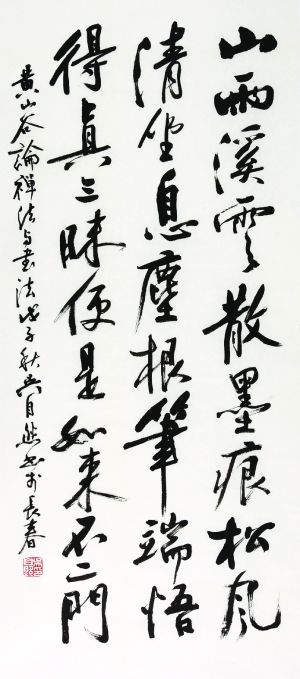 山雨溪雲散墨痕松風
清坐息塵根筆端悟
得真三昧便是如来不二門
黄山谷論禅法与書法戊子秋吴自然書於長春